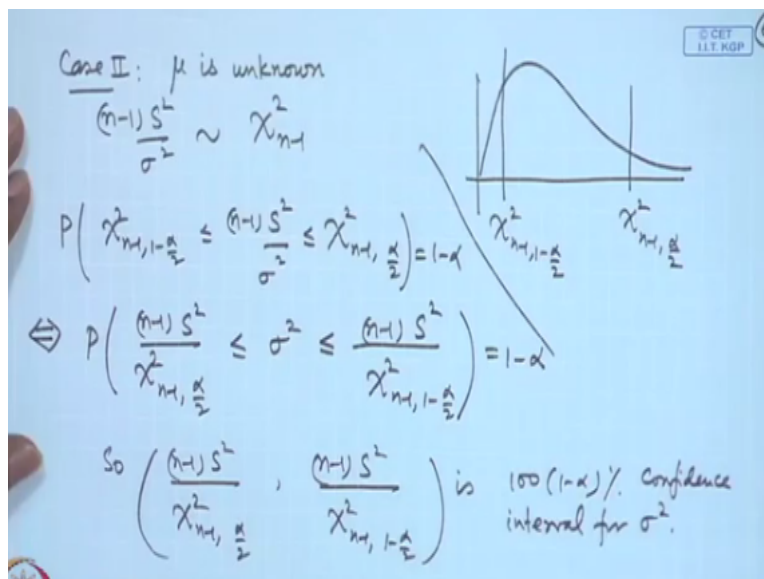 © CET
I.I.T. KGP
Case II: μ is unknown
(n-1) S² / σ² ~ χ²_{n-1}
χ²_{n-1, 1-α/2} χ²_{n-1, α/2}
P( χ²_{n-1, 1-α/2} ≤ (n-1) S² / σ² ≤ χ²_{n-1, α/2} ) = 1-α
⇔ P( (n-1) S² / χ²_{n-1, α/2} ≤ σ² ≤ (n-1) S² / χ²_{n-1, 1-α/2} ) = 1-α
So ( (n-1) S² / χ²_{n-1, α/2} , (n-1) S² / χ²_{n-1, 1-α/2} ) is 100 (1-α) % confidence
interval for σ².